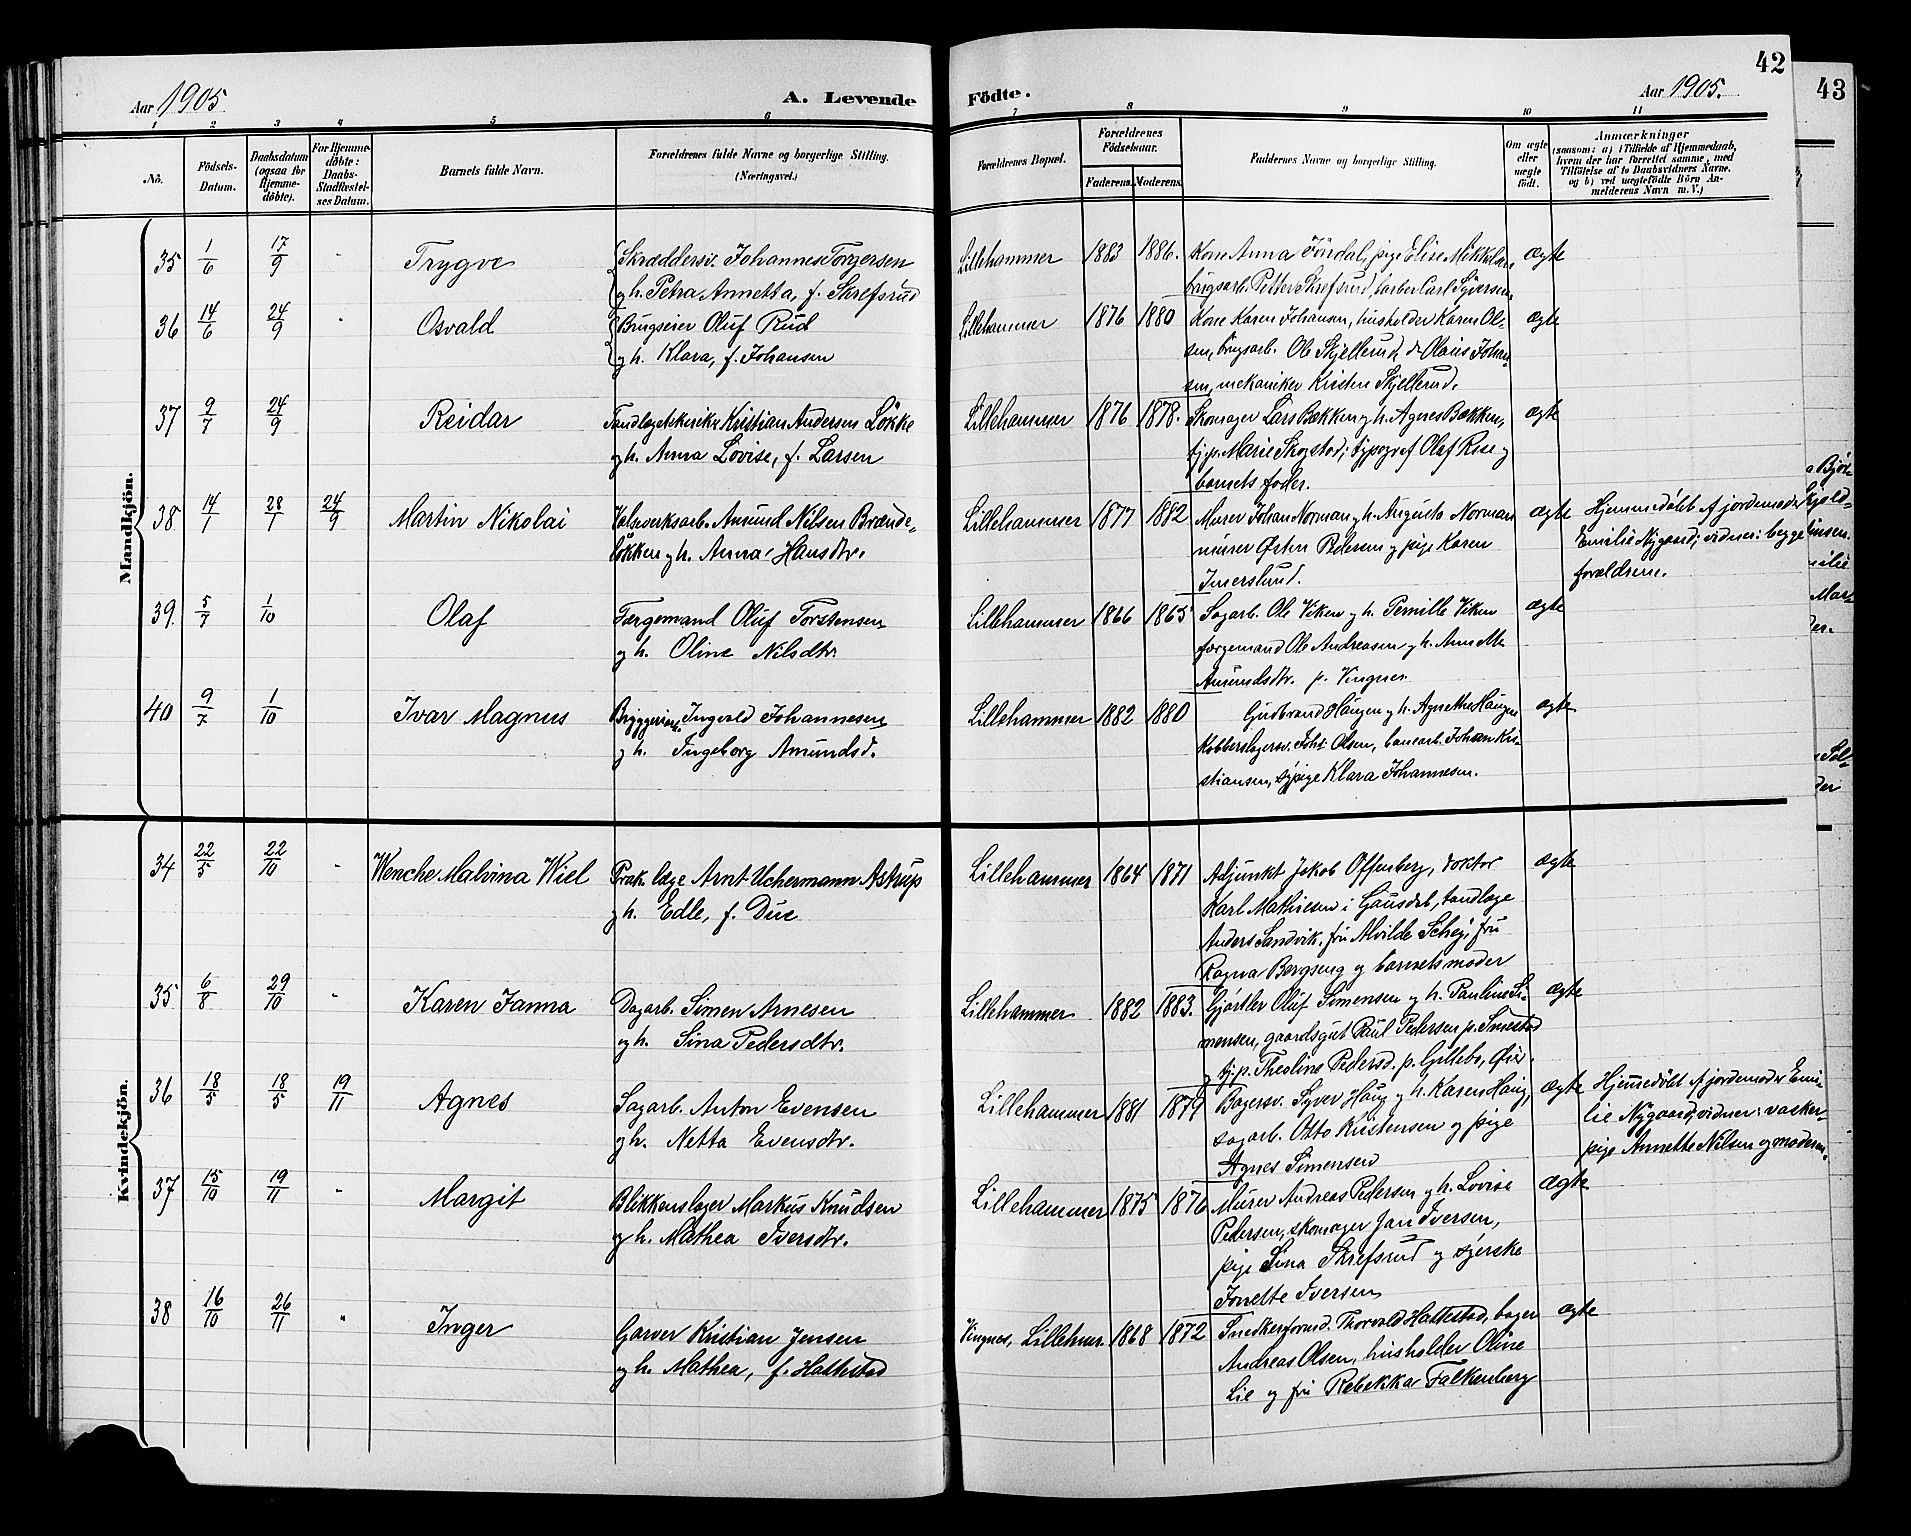 42
43
Aar 1905. A. Levende Födte. Aar 1905.
1 2 3 4 5 6 7 8 9 10 11
No.
Födsels-Datum.
Daabsdatum (ogsaa for Hjemmedöbte).
For Hjemmedöbte: Daabs-Stadfæstelses Datum.
Barnets fulde Navn.
Forældrenes fulde Navne og borgerlige Stilling.
(Næringsvei.)
Forældrenes Bopæl.
Forældrenes Födselsaar.
Faderens. Moderens.
Faddernes Navne og borgerlige Stilling.
Om ægte eller uægte födt.
Anmærkninger
(saasom: a) i Tilfælde af Hjemmedaab,
hvem der har forrettet samme, med
Tilföielse af to Daabsvidners Navne,
og b) ved uægtefödte Börn An-
melderens Navn m. V.)
Mandkjön.
35 1/6 17/9 - Trygve Skræddersv. Johannes Torgersen Lillehammer 1883 1886. Kone Anna Jördal, pige Elise Mikkelsen, ægte
og h. Petra Annetta, f. Skrefsrud brugsarb. Petter Skrefsrud, barber Carl Syversen.
36 14/6 24/9 - Osvald Brugseier Oluf Rud Lillehammer 1876 1880 Kone Karen Johansen, husholder Karen Ol- ægte
og h. Klara, f. Johansen sen, brugsarb. Ole Skjellerud, do Olaus Johan-
sen, mekaniker Kristen Skjellerud.
37 9/7 24/9 Reidar Tandlægetekniker Kristian Andersen Lökke Lillehammer 1876 1878. Skomager Lars Bækken og h. Agnes Bækken, ægte
og h. Anna Lovise, f. Larsen tj.p. Marie Skogstad, typograf Olaf Rise og
barnets fader.
38. 14/1 28/1 24/9 Martin Nikolai Valseverksarb. Amund Nilsen Brænde- Lillehammer 1877 1882 Murer Johan Norman og h. Augusta Norman ægte Hjemmedöbt af jordemoder
lökken og h. Anna Hansdtr. murer Østen Pedersen og pige Karen Emilie Nygaard; vidner: begge
Imerslund. forældrene.
39. 5/7 1/10 Olaf Færgemand Oluf Torstensen Lillehammer 1866 1865 Sagarb. Ole Viken og h. Pernille Viken ægte
og h. Oline Nilsdtr. færgemand Ole Andreasen og h. Anne M.
Amundsdtr. p. Vingnes.
40 9/7 1/10 Ivar Magnus Bryggeriarb. Ingvald Johannesen Lillehammer 1882 1880 Gudbrand Haugen og h. Agnethe Haugen ægte
og h. Ingeborg Amundsd. Kobberslagersv. Joh. Olsen, banearb. Johan Kri-
stiansen, sypige Klara Johannesen.
Kvindekjön.
34 22/5 22/10 - Wenche Malvina Wiel Prak. læge Arnt Uchermann Astrup Lillehammer 1864 1871 Adjunkt Jakob Offenberg, doktor ægte
og h. Edle, f. Due Karl Mathiesen i Gausdal, tandlæge
Anders Sandvik, fru Alvilde Schej, fru
Ragna Bergseng og barnets moder
35 6/8 29/10 " Karen Janna Dagarb. Simen Arnesen Lillehammer 1882 1883. Gjørtler Oluf Simensen og h. Pauline Si- ægte
og h. Sina Pedersdtr. mensen, gaardsgut Paul Pedersen p. Smestad
og tj.p. Theoline Pedersd. p. Gillebo, Øier.
36 18/5 18/5 19/11 Agnes Sagarb. Anton Evensen Lillehammer 1881 1879 Bagersv. Syver Haug og h. Karen Haug, ægte Hjemmedöbt af jordemoder Emi-
og h. Netta Evensdtr. sagarb. Otto Kristensen og pige lie Nygaard; vidner: vasker-
Agnes Simensen pige Annette Nilsen og moderen.
37 15/10 19/11 " Margit Blikkenslager Markus Knudsen Lillehammer 1875 1876 Murer Andreas Pedersen og h. Lovise ægte
og h. Mathea Iversdtr. Pedersen, skomager Jan Iversen,
pige Sina Skrefsrud og syerske
Jonette Iversen
38 16/10 26/11 " Inger Garver Kristian Jensen Vingnes, Lillehmr. 1868 1872 Snedkerformd. Thorvald Hattestad, bager ægte
og h. Mathea, f. Hattestad Andreas Olsen, husholder Oline
Lie og fru Rebekka Falkenberg